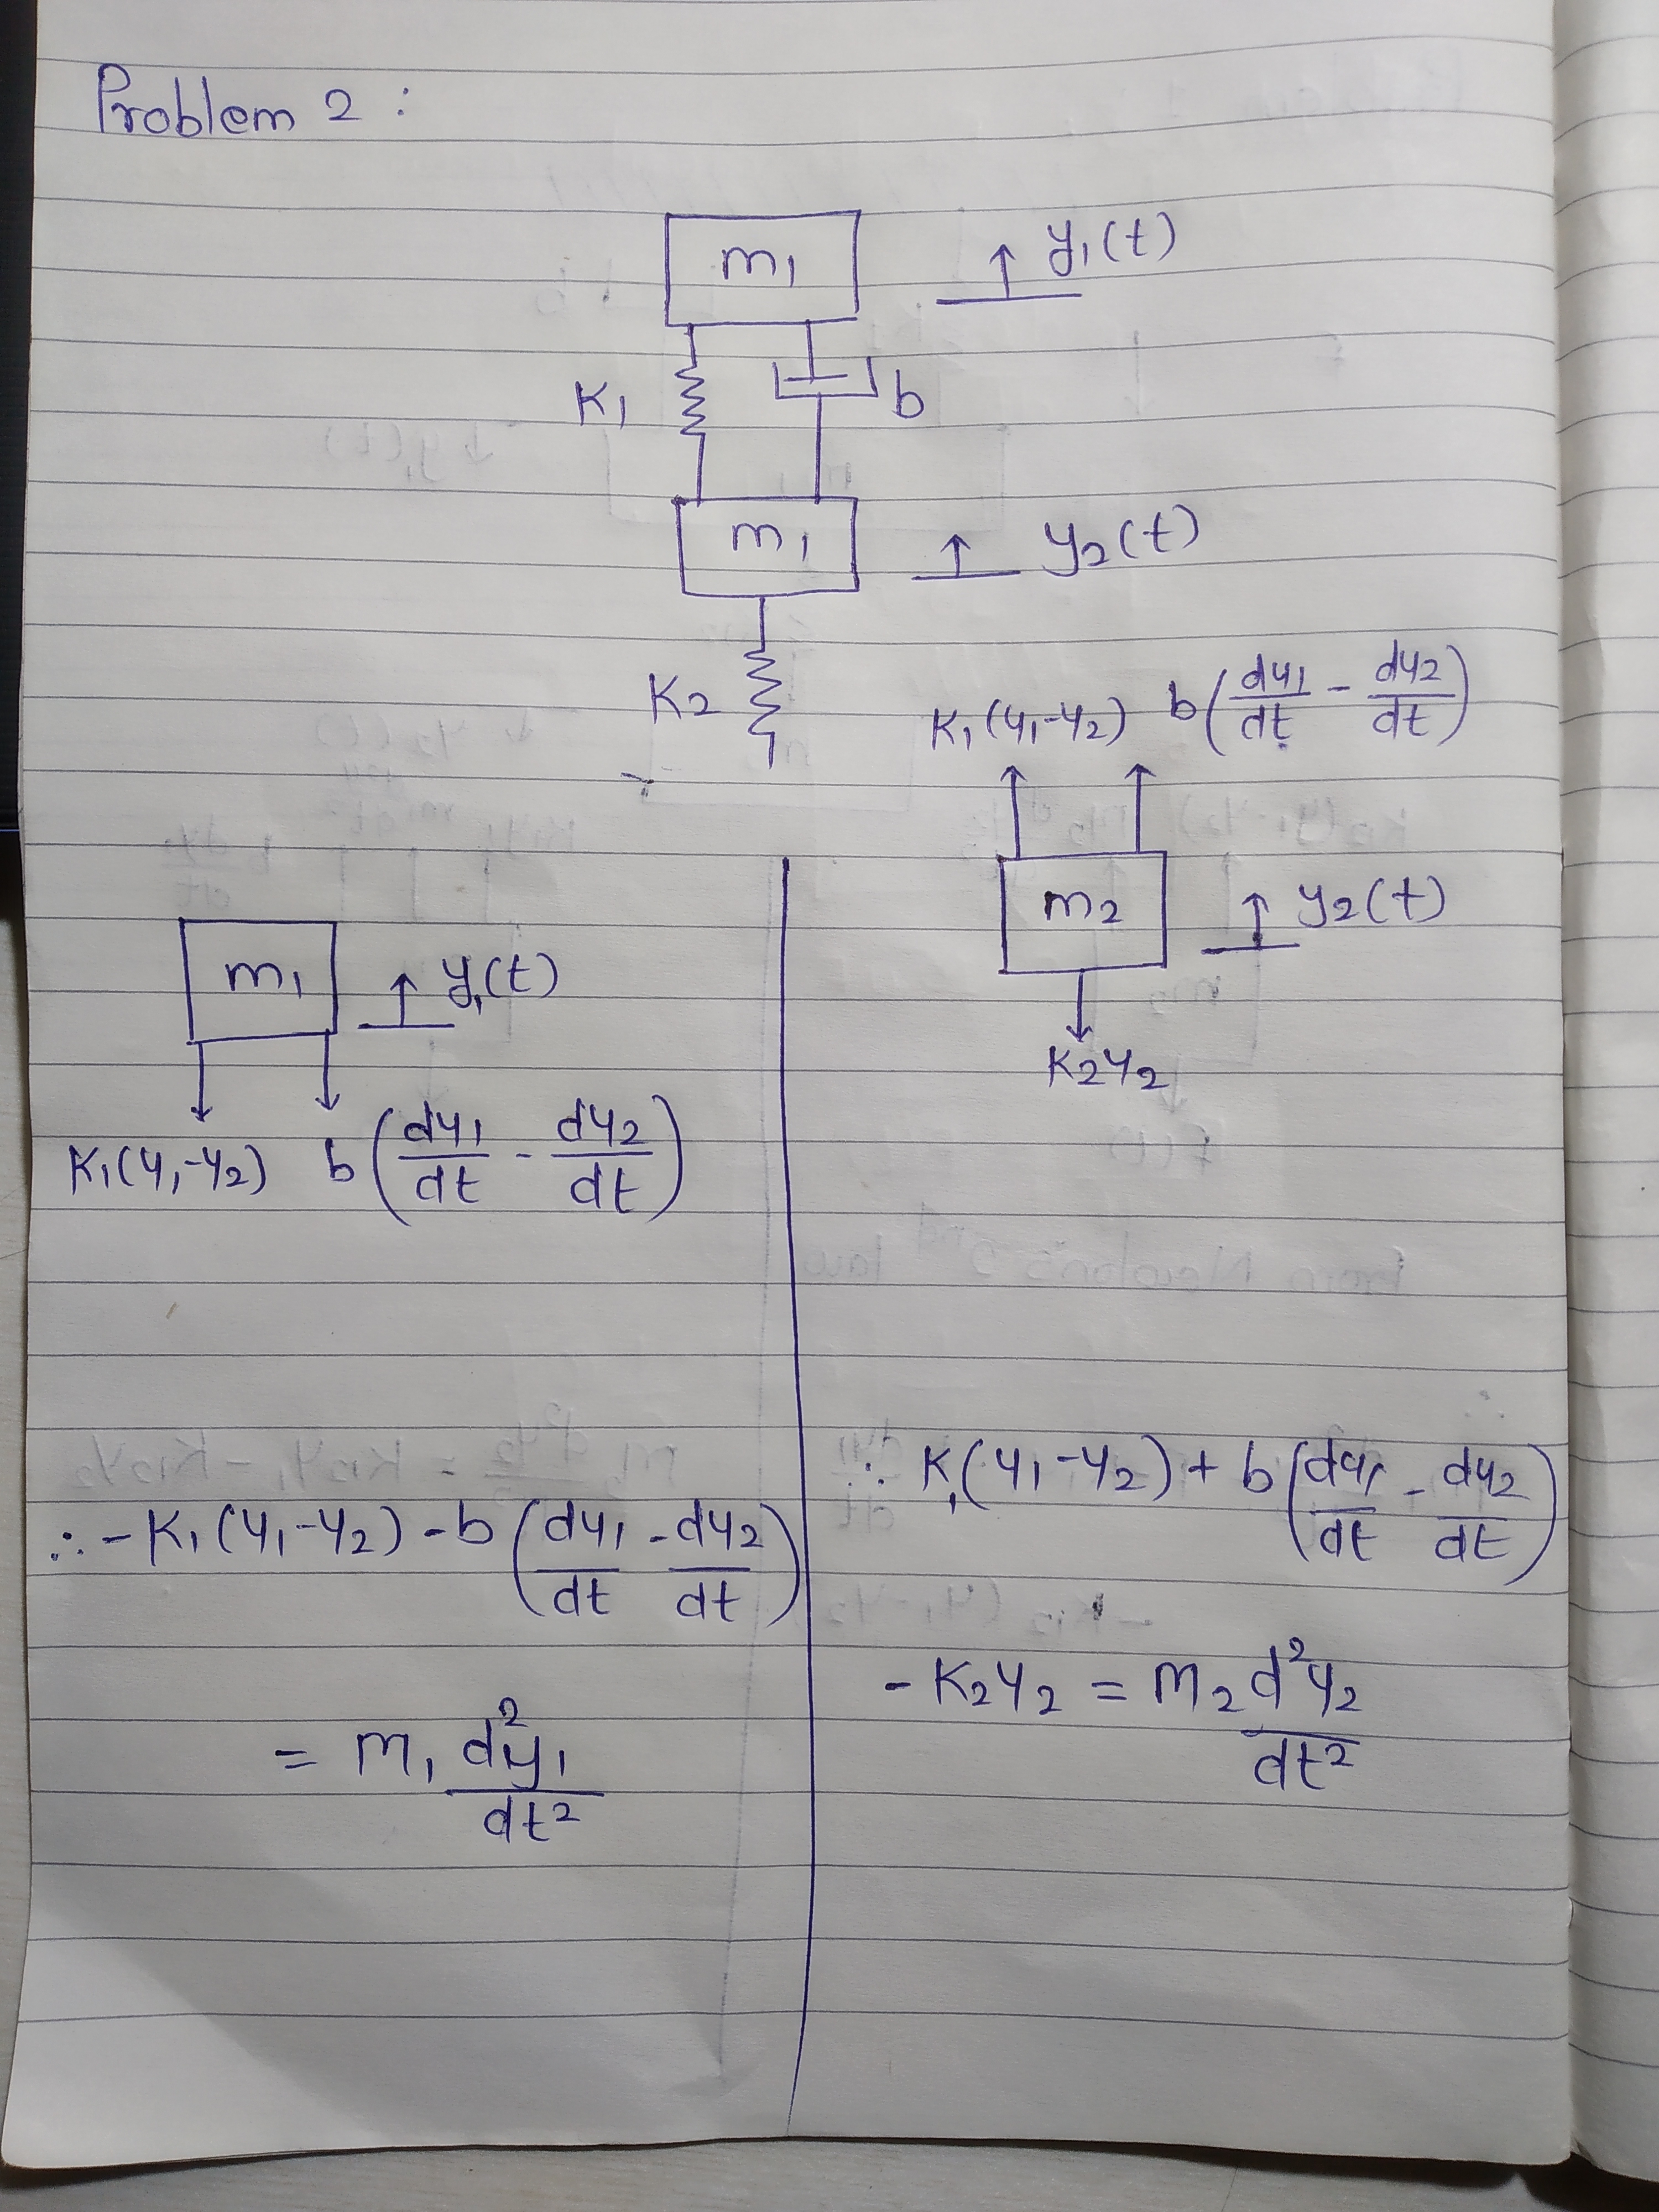 Problem 2 :
m₁
y₁(t)
K₁
b
m₁
y₂(t)
K₂
K₁(y₁-y₂) b(dy₁/dt - dy₂/dt)
m₂
y₂(t)
K₂y₂
m₁
y₁(t)
K₁(y₁-y₂) b(dy₁/dt - dy₂/dt)
∴ -K₁(y₁-y₂) - b(dy₁/dt - dy₂/dt)
= m₁ d²y₁/dt²
∴ K₁(y₁-y₂) + b(dy₁/dt - dy₂/dt)
- K₂y₂ = m₂ d²y₂/dt²